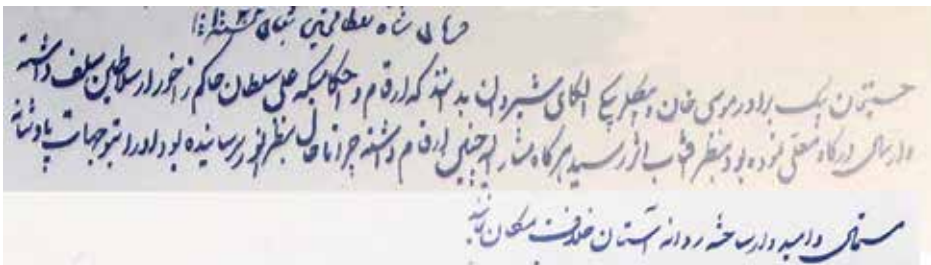 فرمان شاه سلطان حسین شعبان سنه
حسینخان بیک برادر موسی خان و بیگلربیگی الکای شیروان بدانند که ارقام و احکامیکه علی سلطان حاکم زاخور از سلاطین سلف داشته
و ارسال درگاه معلی نموده بود بنظر آفتاب اثر رسید هرگاه مشار الیه چنین ارقام داشته چرا تا حال بنظر انور نرسانیده بود او را بتوجهات پادشاهانه
مستمال و امیدوار ساخته روانه آستان خلافت مکان نمایند